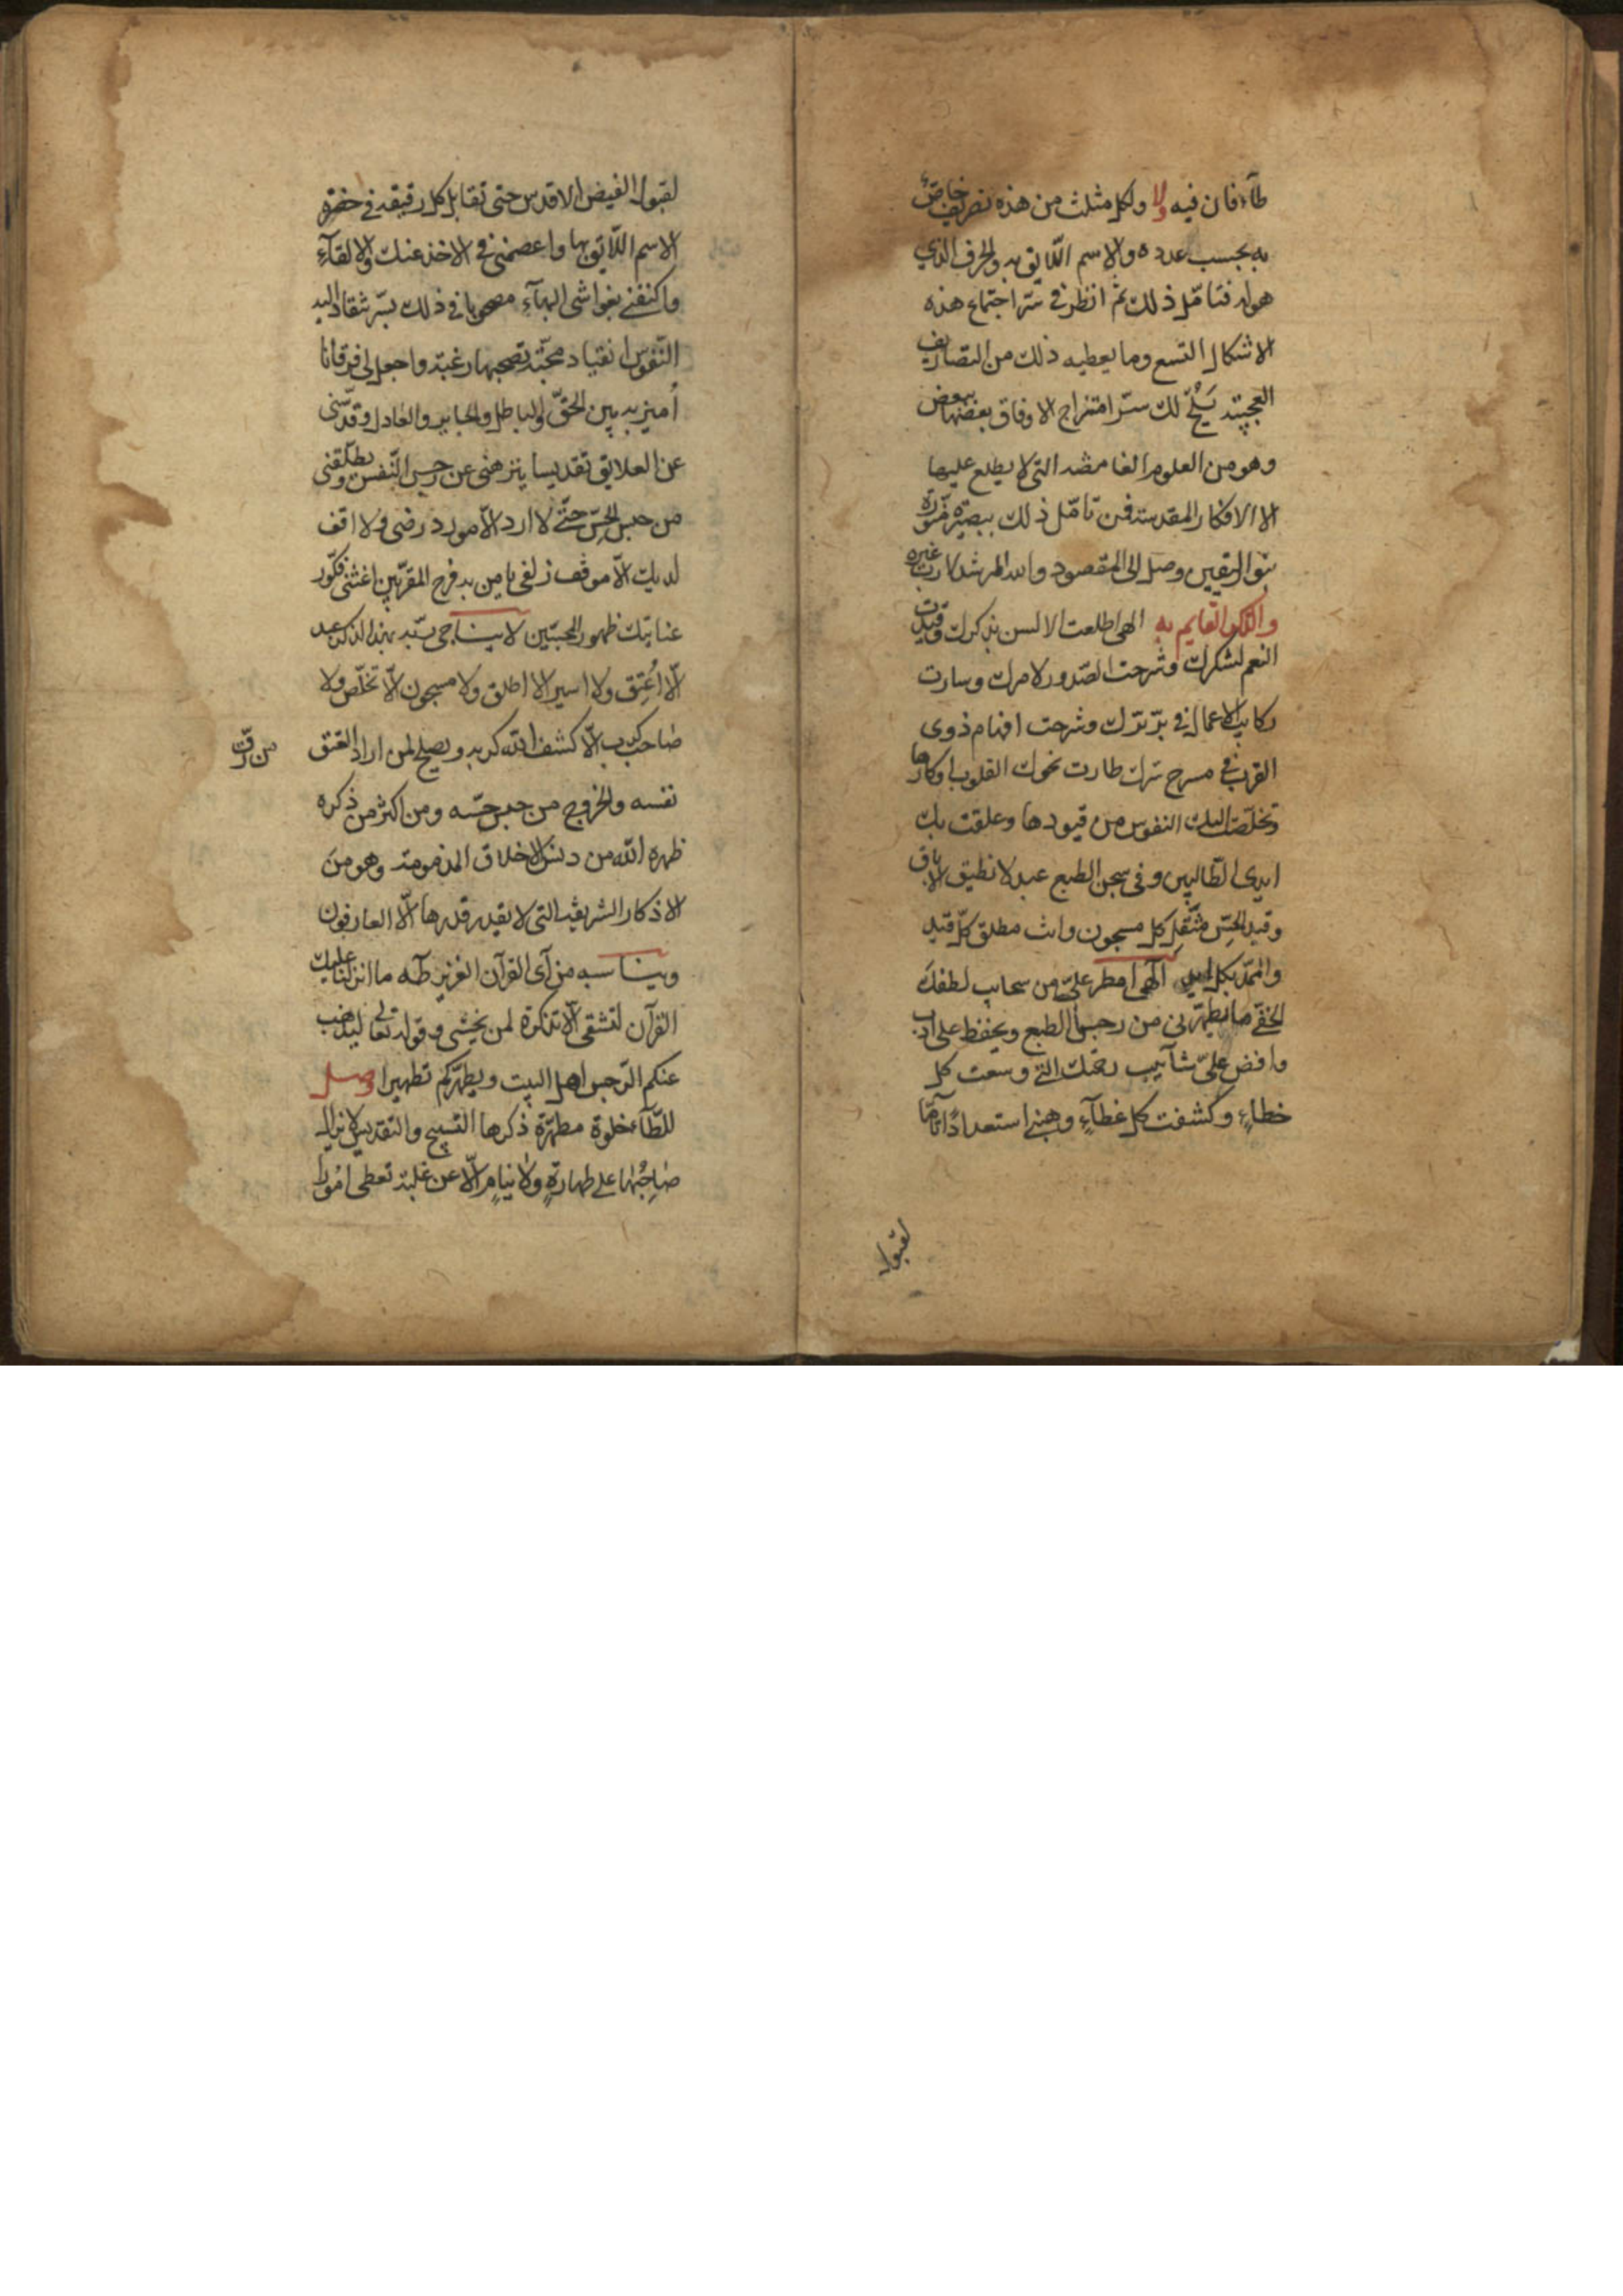 طآء فان فيه ولا ولكل مثلث من هذه تصريف خاصّ
به بحسب عدده والاسم اللايق به والحرف الذي
هو له فتامّل ذلك ثم انظر في سرّ اجتماع هذه
الاشكال التسع وما يعطيه ذلك من التصاريف
العجيبة يَلُحْ لك سرّ امتزاج الاوفاق بعضها ببعض
وهو من العلوم الغامضه التى لا يطلع عليها
الا الافكار المقدسة فمن تامّل ذلك ببصيرة منوّرة
بنور اليقين وصل الى المقصود والله المرشد لا رب غيره
والذكر القايم به الهى اطلعت الالسن بذكرك وقيدت
النعم لشكرك وشرحت الصّدور لامرك وسارت
ركايب الاعمال في برّ برّك وشرحت افهام ذوى
القرب في مسرح سرك طارت نحوك القلوب اوكارها
وتخلصت اليك النفوس من قيودها وعلقت بك
ايدى الطالبين وفى سجن الطبع عبد لا نطيق الاباق
وقيد الحِسّ مثقِل كل مسجون وانت مطلق كلّ قيد
والممدّ بكل الهى امطر علىّ من سحايب لطفك
الخفّى ما يطهّرنى من رجس الطبع ويحفظ على ادب
وافض علىّ شآبيب رحمتك التى وسعت كل
خطاءٍ وكشفت كل غطآءٍ وهبنى استعداداً تامّا
لقبول
لقبول الفيض الاقدس حتى تقابل كل رقيقه في حضرة
الاسم اللّايق بها واعصمنى في الاخذ عنك والالقآء
واكنفنى بغواشى البهآء مصحوبا في ذلك بسرّ تنقاد اليه
النّفوس انقياد محبّة تصحبها رغبة واجعل لى فرقانا
أميز به بين الحقّ والباطل والجاير والعادل وقدّسنى
عن العلايق تقديسا ينزهنى عن رجس النّفس ويطلقنى
من حبس الحِسّ حتّى لا ارد الّا مورد رضى ولا اقف
لديك الّا موقف زلفى يا من به فرح المقرّبين اغثنى فكوّر
عنايتك ظهور المحبّين لا يناجى ربّه بهذا الذكر عبد
الّا أُعتِق ولا اسير الا اطلق ولا مسجون الّا تخلّص ولا
صاحب كرب الّا كشف الله كربه ويصلح لمن اراد العتق
من رقّ
نفسه والخروج من حبس حسّه ومن اكثر من ذكره
طهره الله من دنس الاخلاق المذمومة وهو من
الاذكار الشريفة التى لا يقدر قدرها الّا العارفون
ويناسبه من آى القرآن العزيز طه ما انزلنا عليك
القرآن لتشقى الّا تذكرة لمن يخشى وقوله تعالى ليذهب
عنكم الرّجس اهل البيت ويطهّركم تطهيرا وصل
للطّآء خلوة مطهّرة ذكرها التسبيح والتقديس لا يزال
صاحبُها على طهارةٍ ولا نيامٍ الّا عن غلبة تعطى امورا